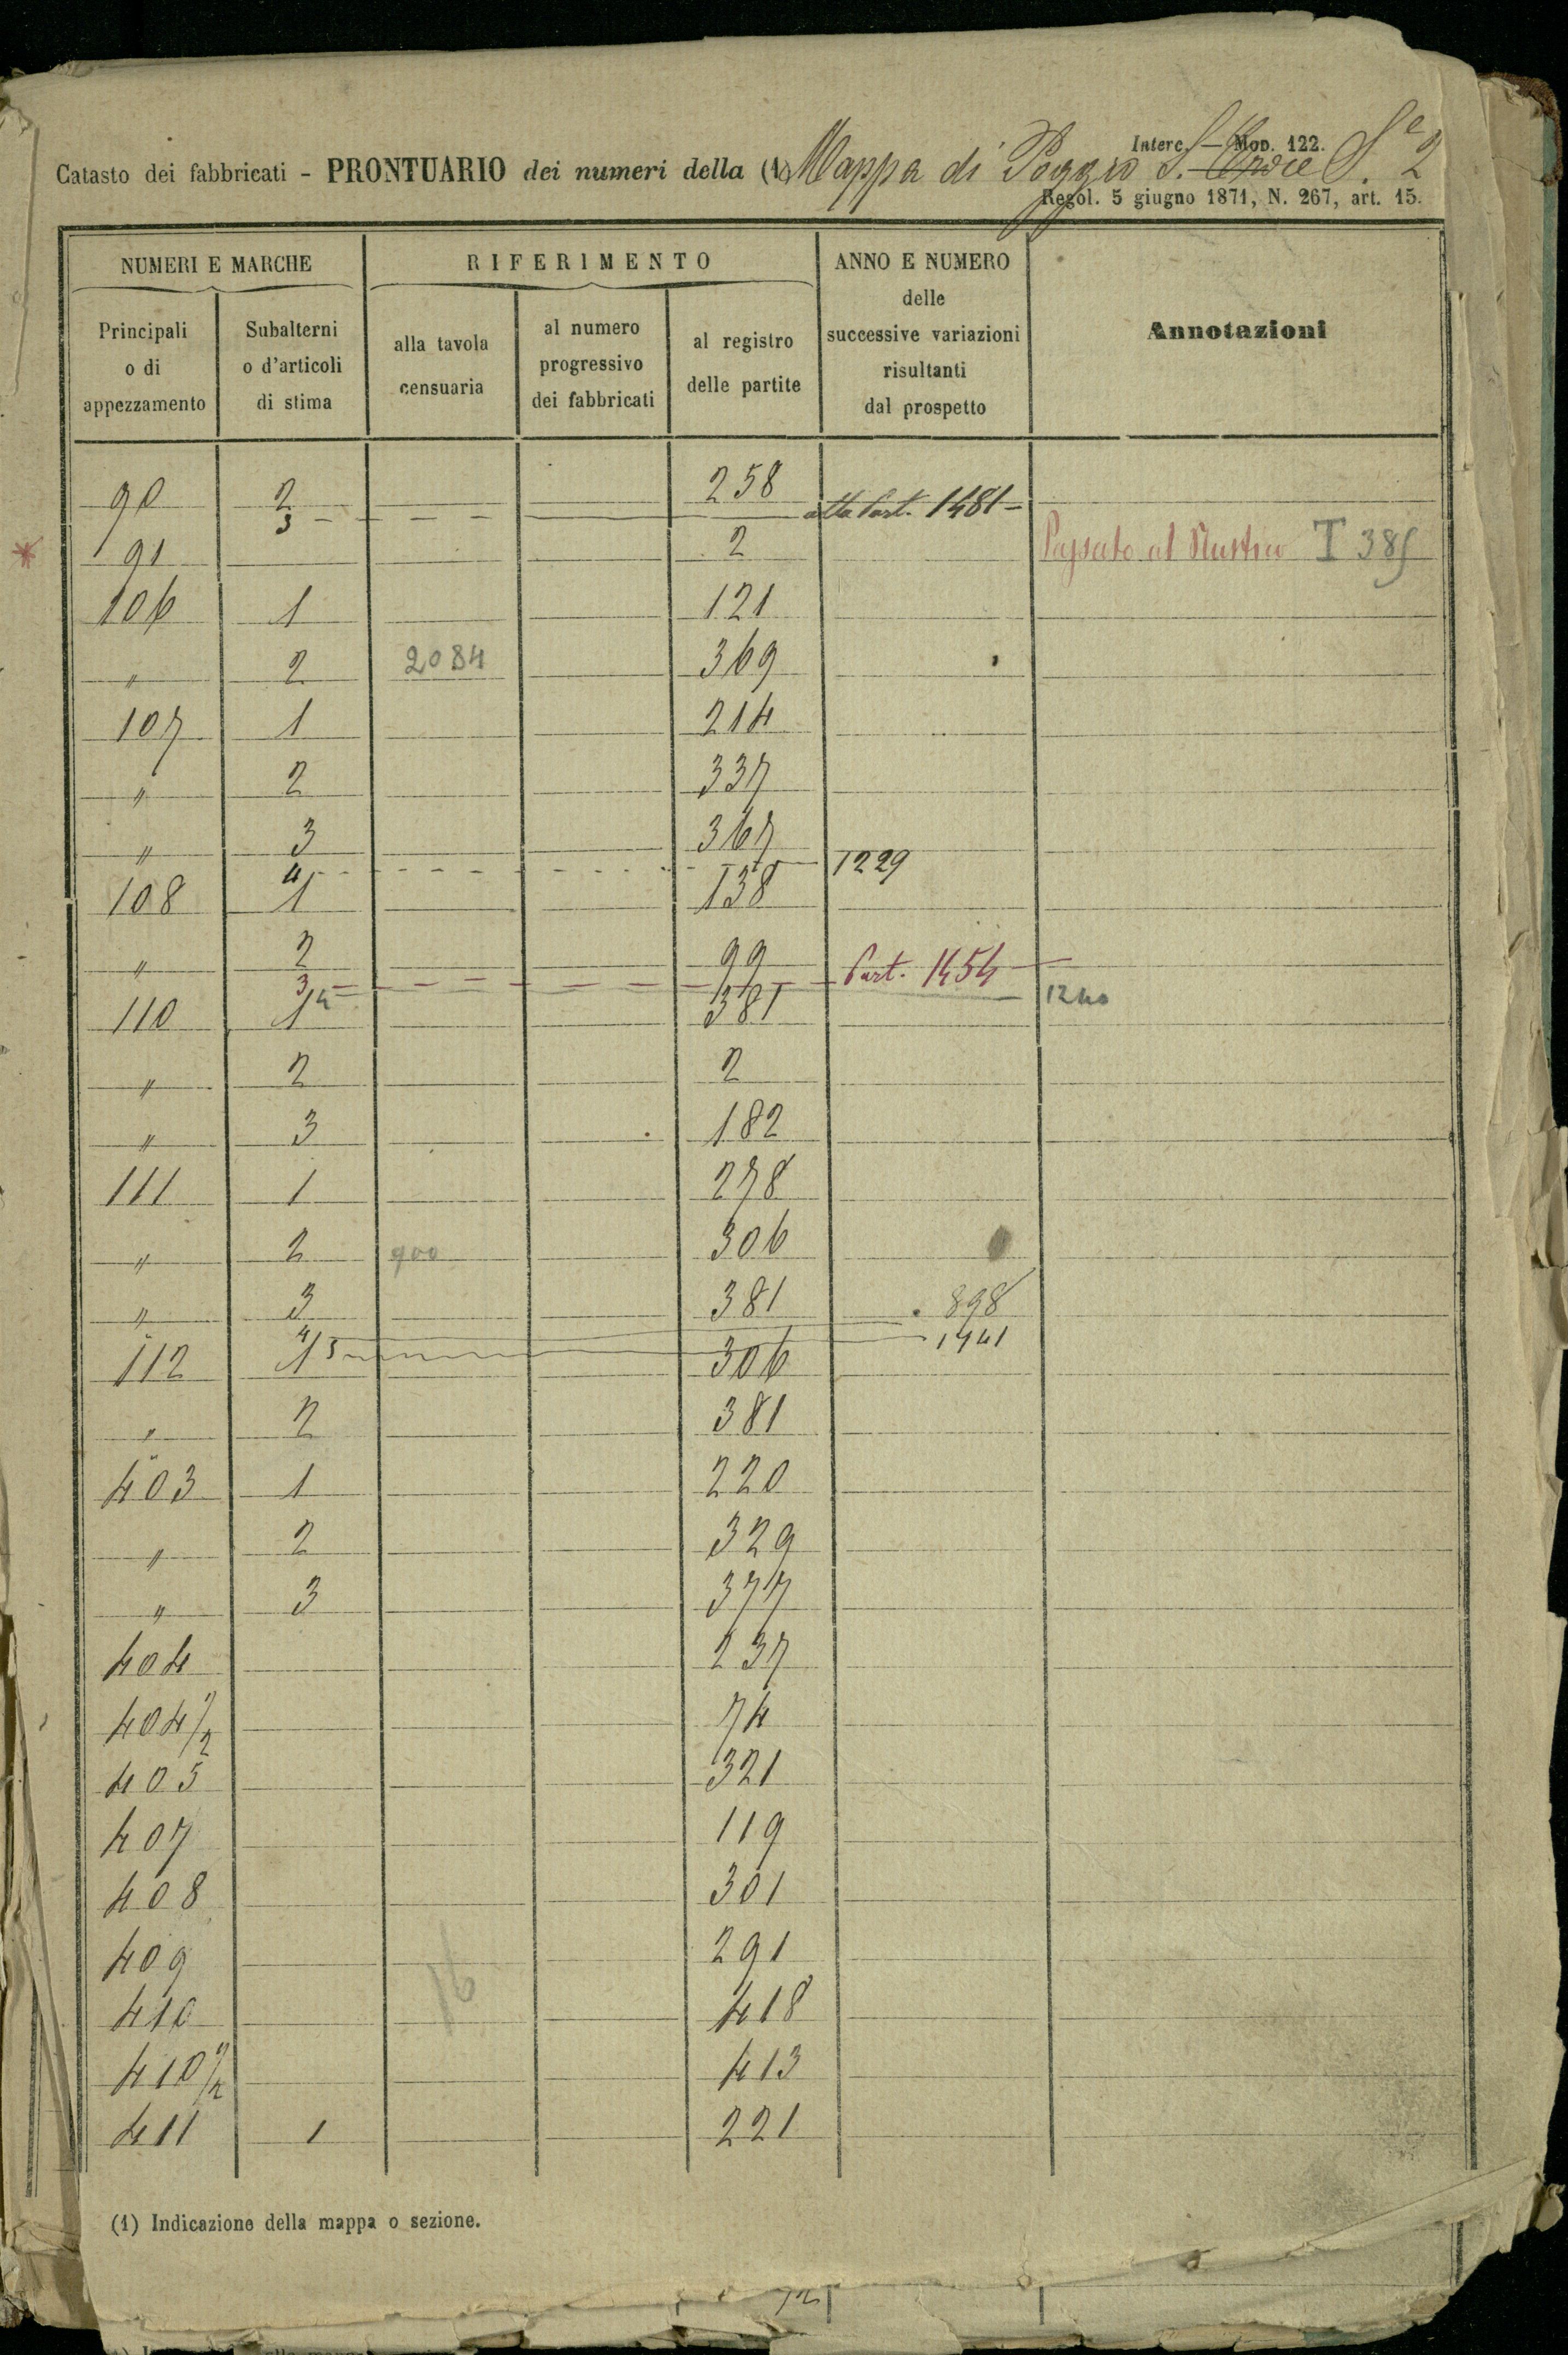 Interc. — Mod. 122.
Catasto dei fabbricati - PRONTUARIO dei numeri della (1) Mappa di Poggio S. S.e 2
Regol. 5 giugno 1871, N. 267, art. 15.
NUMERI E MARCHE RIFERIMENTO ANNO E NUMERO delle successive variazioni risultanti dal prospetto Annotazioni
Principali o di appezzamento Subalterni o d'articoli di stima alla tavola censuaria al numero progressivo dei fabbricati al registro delle partite
90 2 258
3 alla Part. 1481
91 2 Passato al T 385
106 1 121
" 2 2084 369
107 1 214
" 2 337
" 3 367
4 1229
108 1 138
" 2 99
3 Part. 1454
4 1240
110 1 381
" 2 2
" 3 182
111 1 278
" 2 900 306
" 3 381 898
4/5 1441
112 1 306
" 2 381
403 1 220
" 2 329
" 3 377
404 237
404 1/2 74
405 321
407 119
408 301
409 291
410 418
410 1/2 413
411 1 221
(1) Indicazione della mappa o sezione.